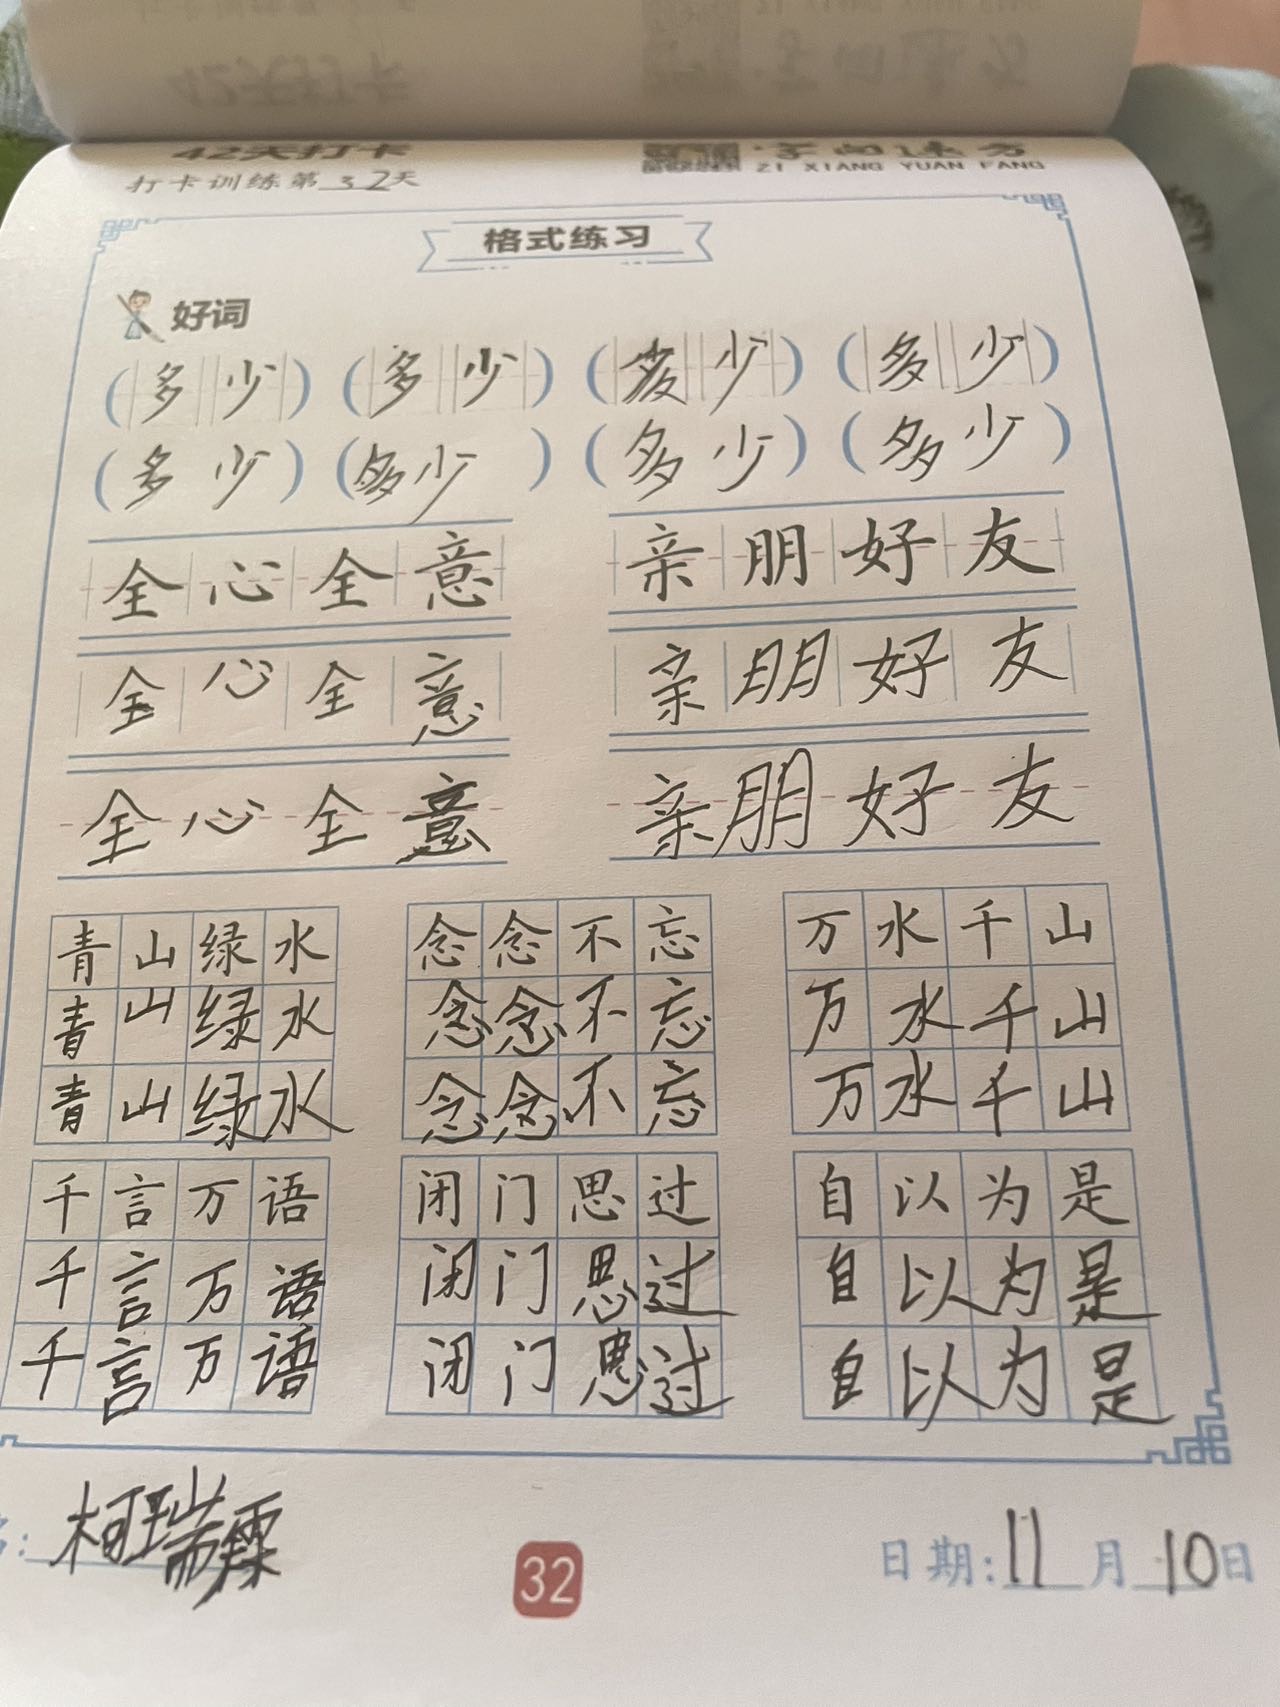 42天打卡
字向远方
打卡训练第32天
ZI XIANG YUAN FANG
格式练习
好词
(多少) (多少) (多少) (多少)
(多少) (多少) (多少) (多少)
全心全意 亲朋好友
全心全意 亲朋好友
全心全意 亲朋好友
青山绿水 念念不忘 万水千山
青山绿水 念念不忘 万水千山
青山绿水 念念不忘 万水千山
千言万语 闭门思过 自以为是
千言万语 闭门思过 自以为是
千言万语 闭门思过 自以为是
名:柯瑞霖
32
日期:11月10日